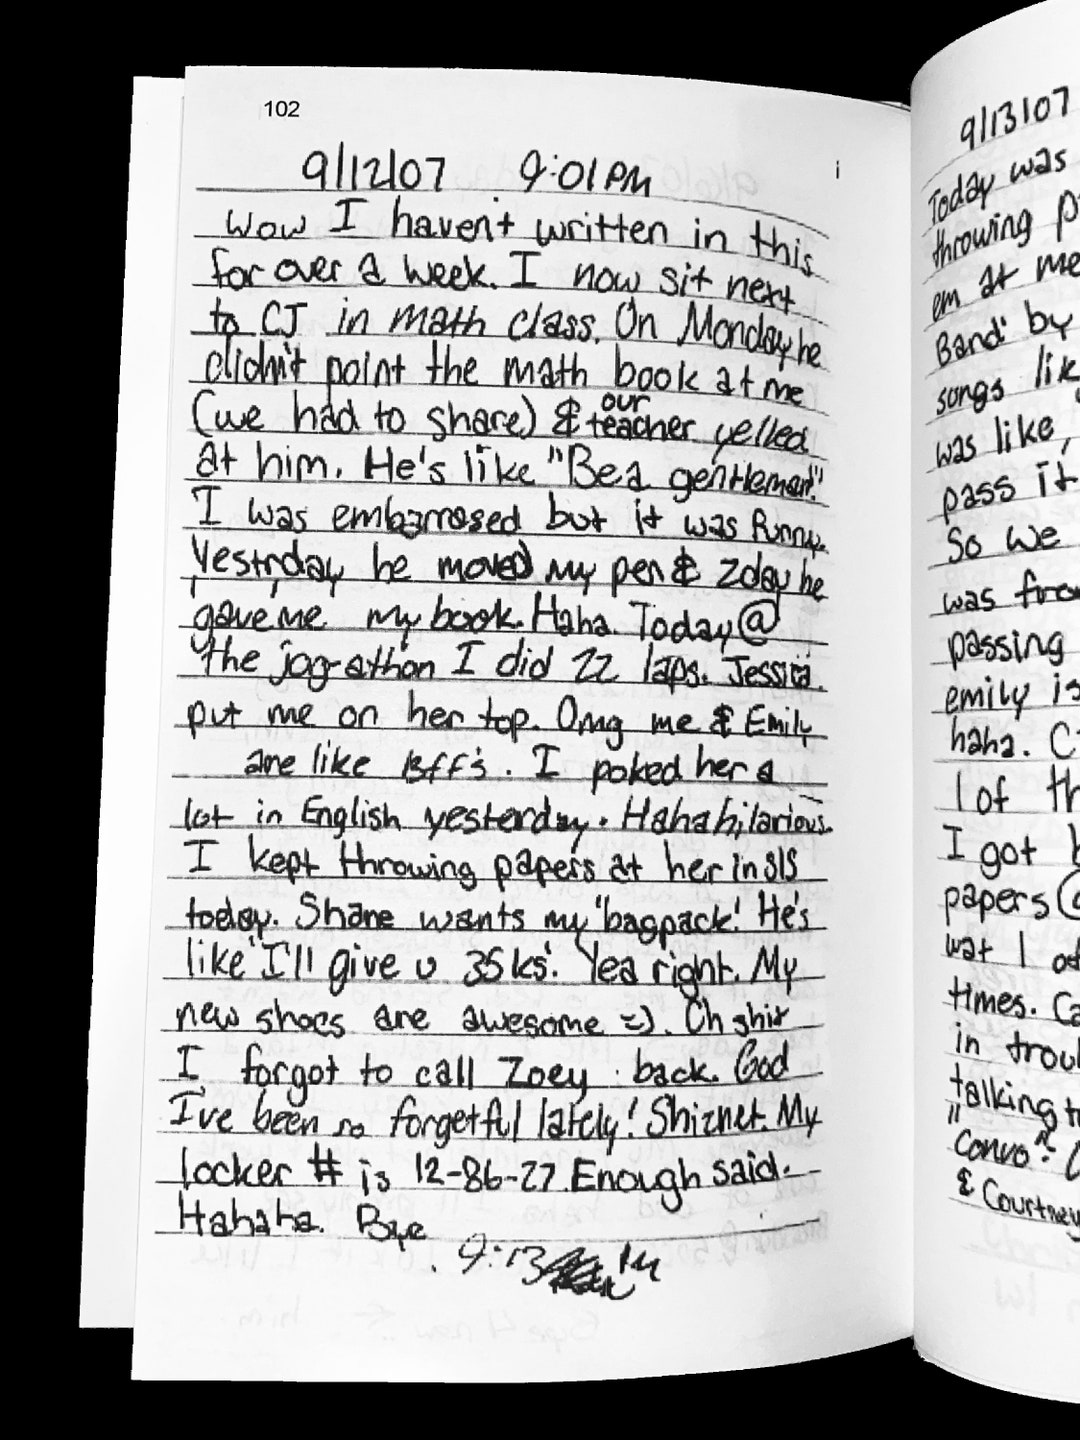 102
9/12/07 9:01PM
i
Wow I haven't written in this
for over a week. I now sit next
to CJ in math class. On Monday he
didn't point the math book at me
(we had to share) & our teacher yelled
at him. He's like "Be a gentleman"
I was embarrosed but it was funny.
Yestrday he moved my pen & 2day he
gave me my book. Haha. Today @
the jog-athon I did 22 laps. Jessica
put me on her top. Omg me & Emily
are like Bff's. I poked her a
lot in English yesterday. Haha hilarious.
I kept throwing papers at her in SIS
today. Shane wants my "bagpack". He's
like "I'll give u 35ks". Yea right. My
new shoes are awesome =). Oh shit
I forgot to call Zoey back. God
I've been so forgetful lately! Shiznet. My
locker # is 12-86-27. Enough said.
Hahaha. Bye.
9:13 PM
9/13/07
Today was
throwing
em at me
Band" by
songs
was like,
pass it
So we
was
passing
emily is
haha.
1 of
I got
papers @
wat I
times.
in
talking
"Convo".
& Courtney